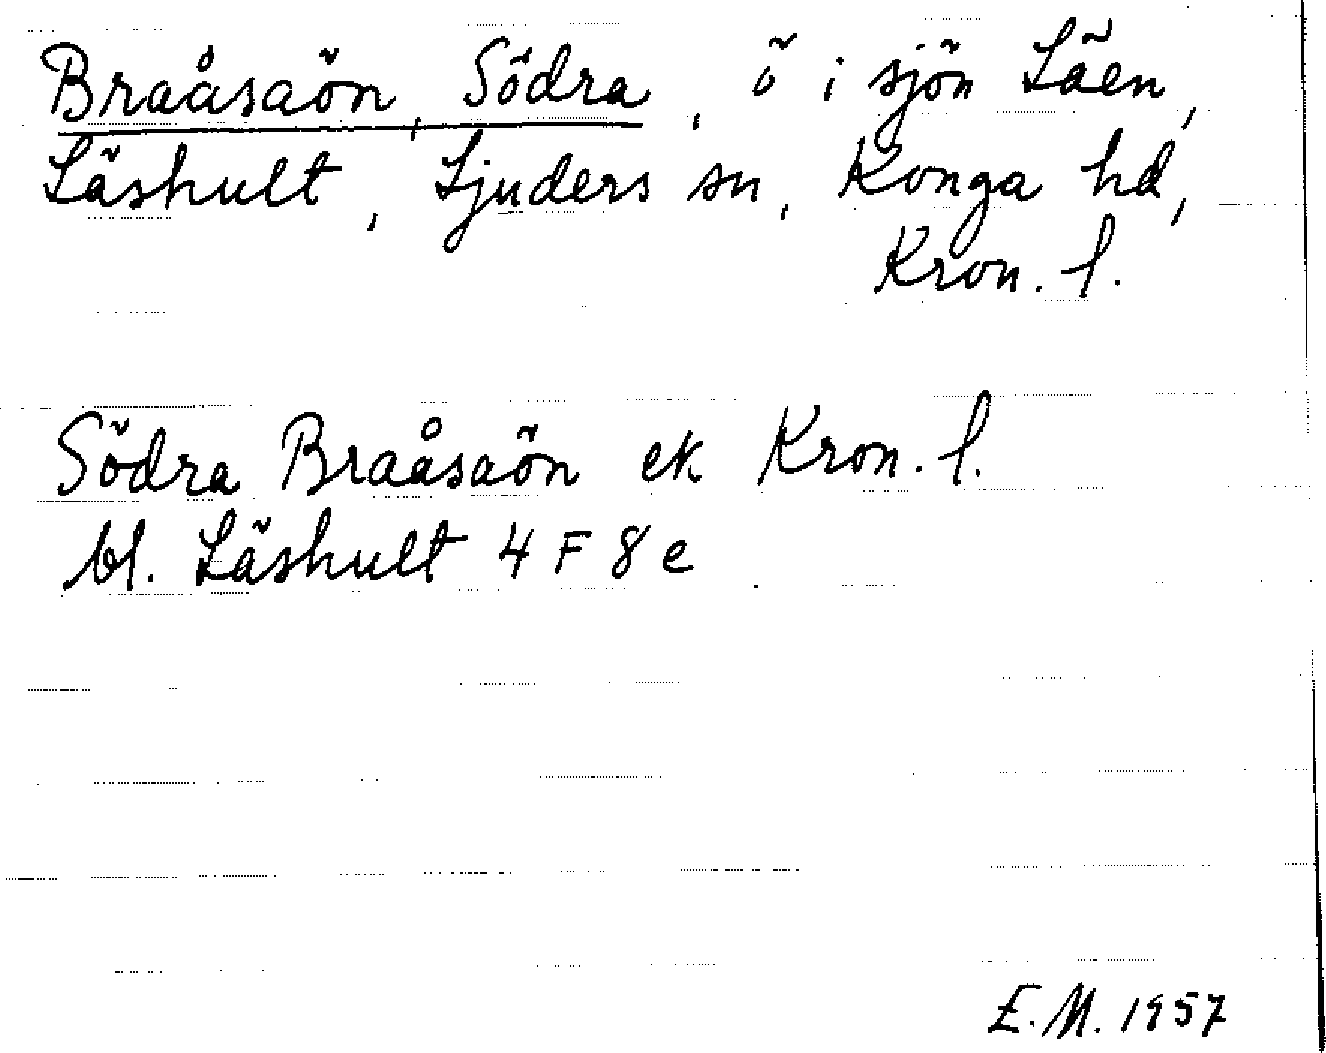 Braåsaön, Södra, ö i sjön Läen,
Läshult, Ljuders sn, Konga hd,
Kron. l.
Södra Braåsaön ek Kron. l.
bl. Läshult 4 F 8 e
E. M. 1957